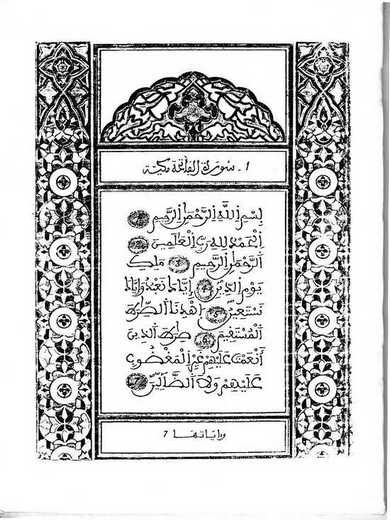 1 - سورة الفاتحة مكية
بسم الله الرحمن الرحيم
الحمد لله رب العالمين
الرحمن الرحيم ملك
يوم الدين إياك نعبد وإياك
نستعين اهدنا الصراط
المستقيم صراط الذين
أنعمت عليهم غير المغضوب
عليهم ولا الضالين
وآياتها 7